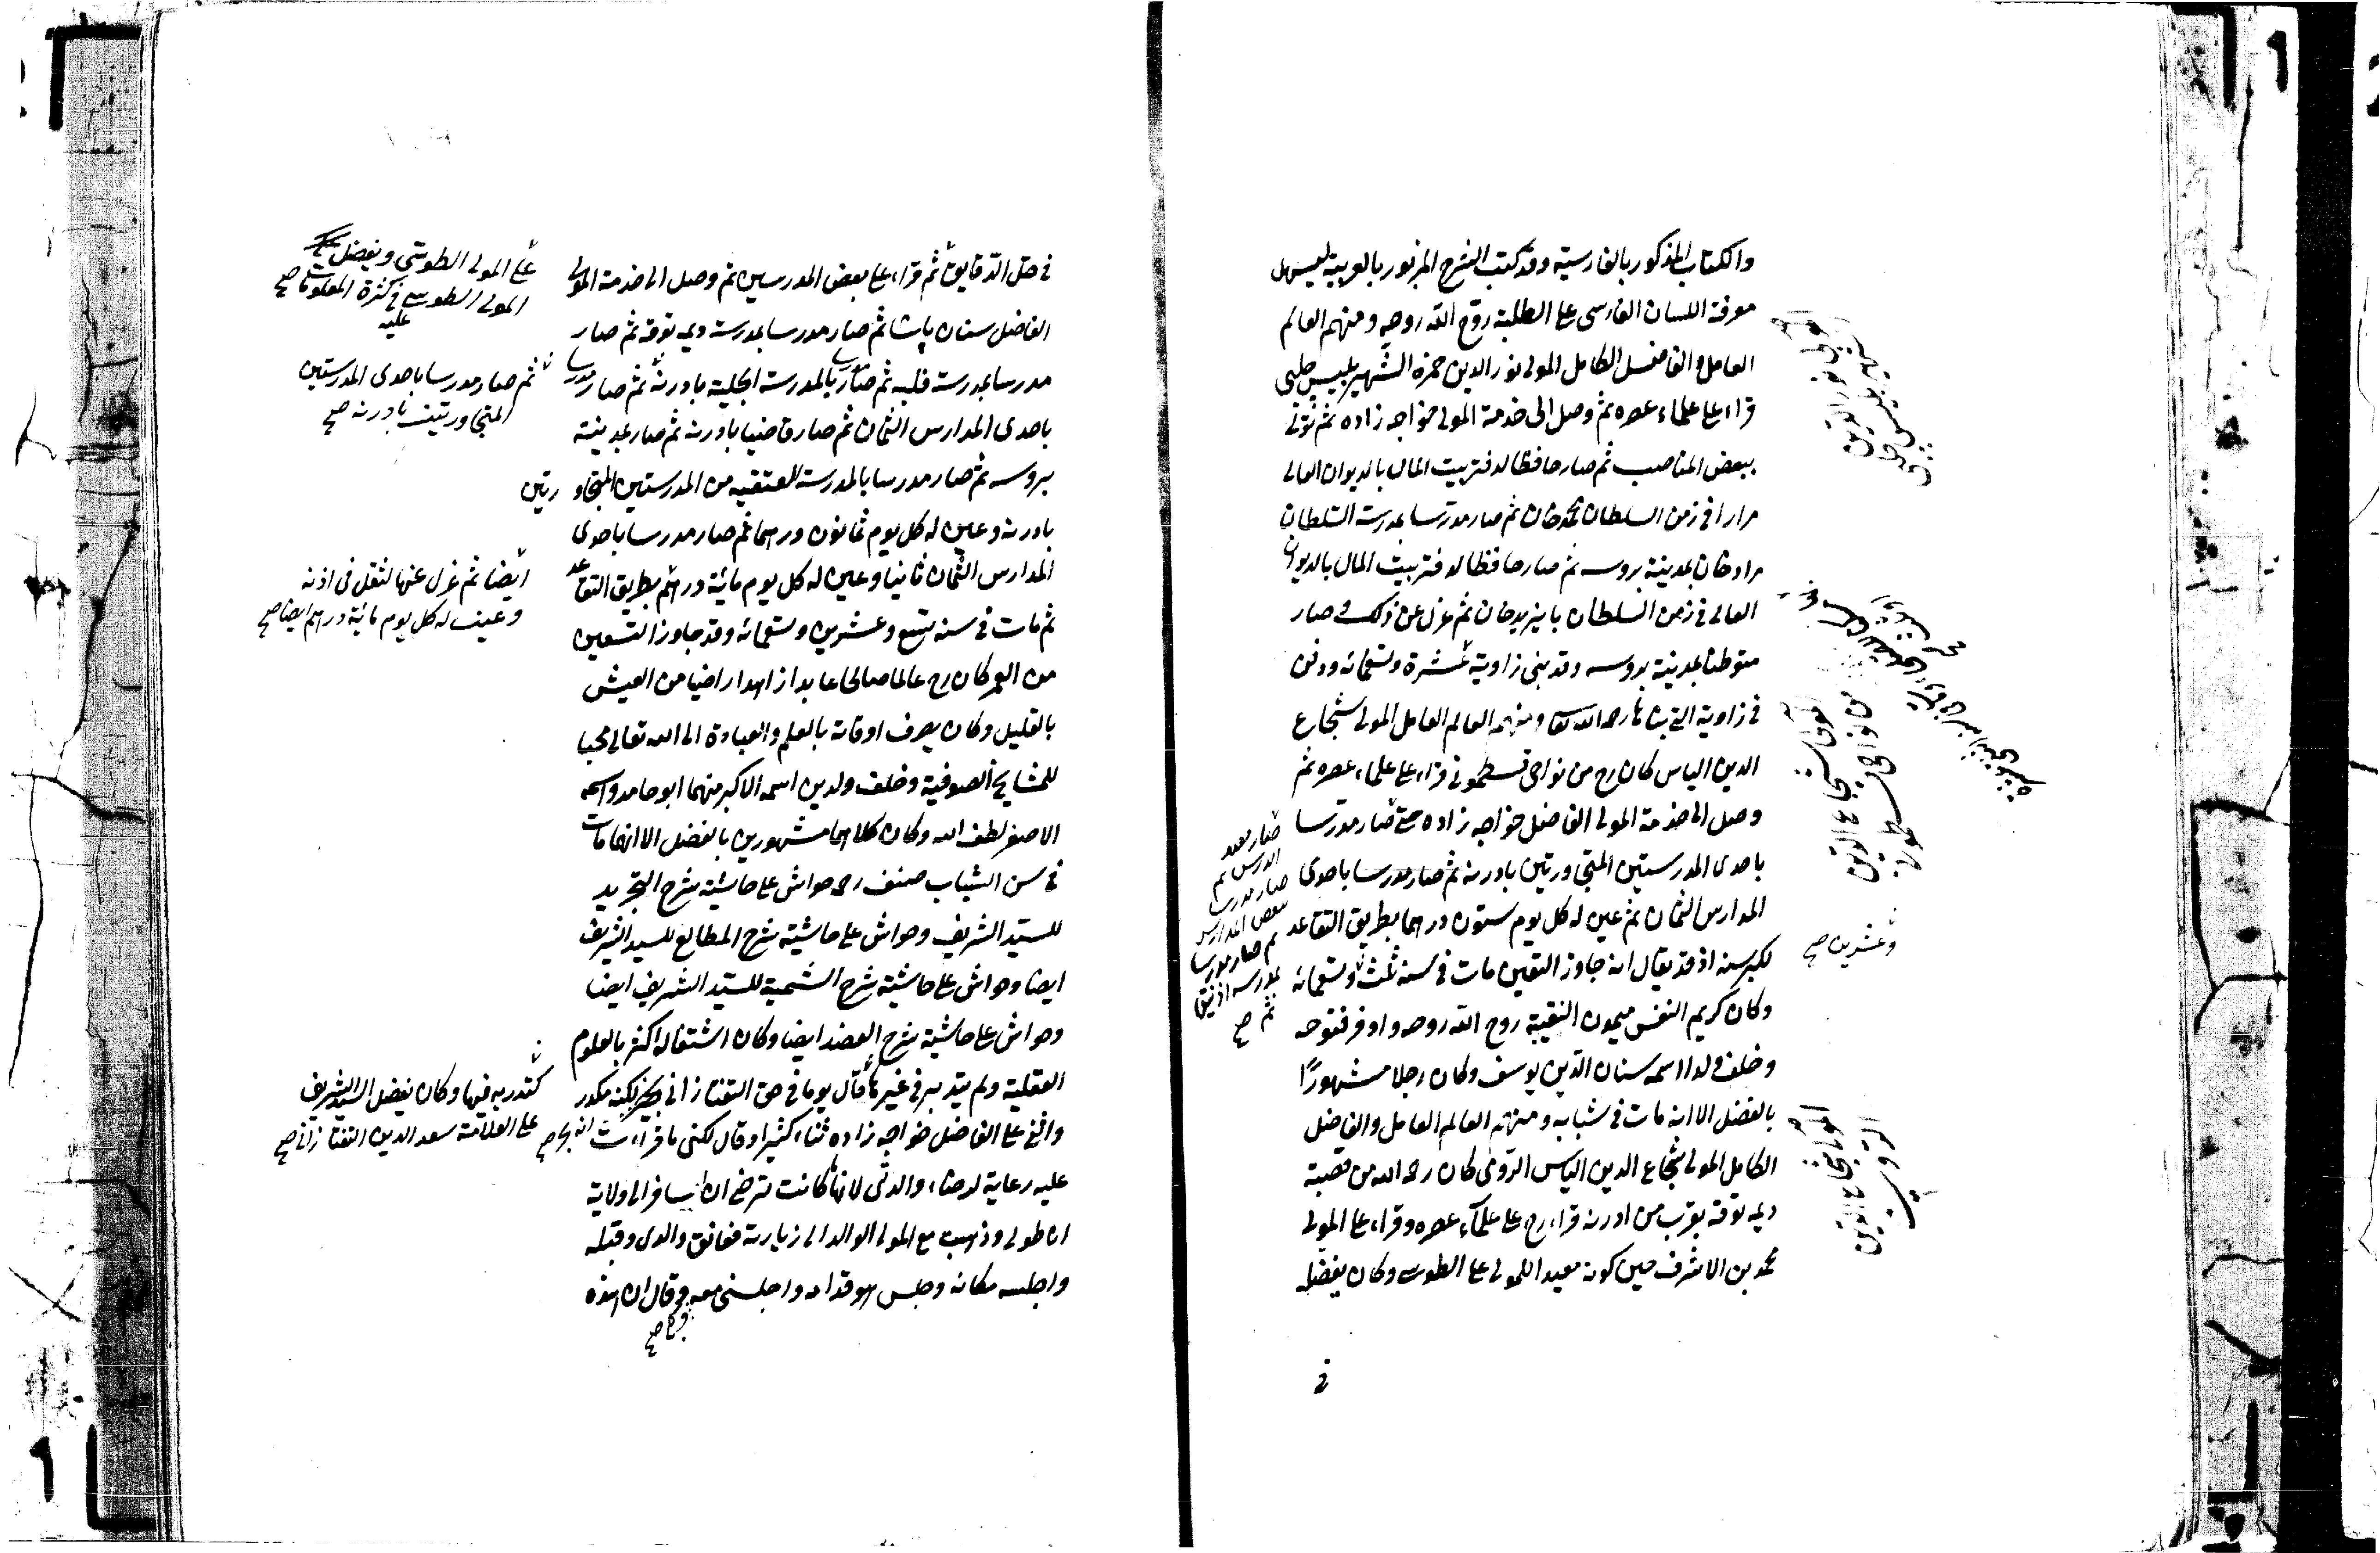 والكتاب المذكور بالفارسية وقد كتب الشرح المزبور بالعربية ليسهل
معرفة اللسان الفارسى على الطلبة روح الله روحه ومنهم العالم
العامل والفاضل الكامل المولى نور الدين حمزه الشهير بليس چلبى
قراء على علماء عصره ثم وصل الى خدمة المولى خواجه زاده ثم تولى
ببعض المناصب ثم صار حافظا لدفتر بيت المال بالديوان العالى
مرارا فى زمن السلطان محمد خان ثم صار مدرسا بمدرسة السلطان
مراد خان بمدينة بروسه ثم صار حافظا لدفتر بيت المال بالديوان
العالى فى زمن السلطان بايزيد خان ثم عزل عن ذلك وصار
متوطنا بمدينة بروسه وقد بنى زاوية عشرة وتسعمائه ودفن
فى زاوية التى بناها رحمه الله تعا ومنهم العالم العامل المولى شجاع
الدين الياس كان رح من نواحى قسطمونى قراء على علماء عصره ثم
وصل الى خدمة المولى الفاضل خواجه زاده حتى صار مدرسا
باحدى المدرستين المتجاورتين بادرنه ثم صار مدرسا باحدى
المدارس الثمان ثم عين له كل يوم ستون درهما بطريق التقاعد
لكبر سنه اذ قد يقال انه جاوز التسعين مات فى سنه ثلث وتسعمائه
وكان كريم النفس ميمون النقيبة روح الله روحه واوفر فتوحه
وخلف ولدا اسمه سنان الدين يوسف وكان رجلا مشهورًا
بالفضل الا انه مات فى شبابه ومنهم العالم العامل والفاضل
الكامل المولى شجاع الدين الياس الرومى كان رحمه الله من قصبة
ديمه توقه بقرب من ادرنه قراء رح على علماء عصره وقراء على المولى
محمد بن الاشرف حين كونه معيدا للمولى على الطوسى وكان يفضله
فى
المولى نور الدين
الشهير بليس چلبى
المولى شجاع الدين
من نواحى قسطمونى
وعشرين صح
المولى شجاع الدين
الرومى
صار معيد
الدرس ثم
صار مدرسا
ببعض المدارس
ثم صار مدرسا
بمدرسه ازنيق
ثم صح
فى حل الدقايق ثم قراء على بعض المدرسين ثم وصل الى خدمة المولى
الفاضل سنان پاشا ثم صار مدرسا بمدرسة ديمه توقه ثم صار
مدرسا بمدرسة فلبه ثم صار مدرسا بالمدرسة الحلبية بادرنه ثم صار مدرسا
باحدى المدارس الثمان ثم صار قاضيا بادرنه ثم صار بمدينة
بروسه ثم صار مدرسا بالمدرسة العتيقه من المدرستين المتجاورتين
بادرنه وعين له كل يوم ثمانون درهما ثم صار مدرسا باحدى
المدارس الثمان ثانيا وعين له كل يوم مائة درهم بطريق التقاعد
ثم مات فى سنه تسع وعشرين وتسعمائه وقد جاوز التسعين
من العمر كان رح عالما صالحا عابدا زاهدا راضيا من العيش
بالقليل وكان يصرف اوقاته بالعلم والعبادة الى الله تعالى محبا
للمشايخ الصوفية وخلف ولدين اسم الاكبر منهما ابو حامد واسم
الاصغر لطف الله وكان كلاهما مشهورين بالفضل الا انهما مات
فى سن الشباب صنف رحمه حواش على حاشية شرح التجريد
للسيد الشريف وحواش على حاشية شرح المطالع للسيد الشريف
ايضا وحواش على حاشية شرح الشمسية للسيد الشريف ايضا
وحواش على حاشية شرح العضد ايضا وكان اشتغاله اكثر بالعلوم
العقلية ولم يتدبر فى غيرها قال يوما فى حق التفتازانى بحر لكنه مكدر
واثنى على الفاضل خواجه زاده ثناء كثيرا وقال لكنى ما قراءت
عليه رعاية لرضاء والدتى لانها كانت لم ترض ان اسافر الى ولاية
اناطولى وذهبت مع المولى الوالد الى زيارته فعانق والدى وقبله
واجلسه مكانه وجلس هو قدامه واجلسنى معه وقال ان هذه
على المولى الطوسى ويفضل
المولى الطوسى فى كثرة المعلومات صح
عليه
ثم صار مدرسا باحدى المدرستين
المتجاورتين بادرنه صح
ايضا ثم عزل عنها لثقل فى اذنه
وعين له كل يوم مائة درهم ايضا صح
لتدربه فيها وكان يفضل السيد الشريف
على العلامة سعد الدين التفتازانى صح